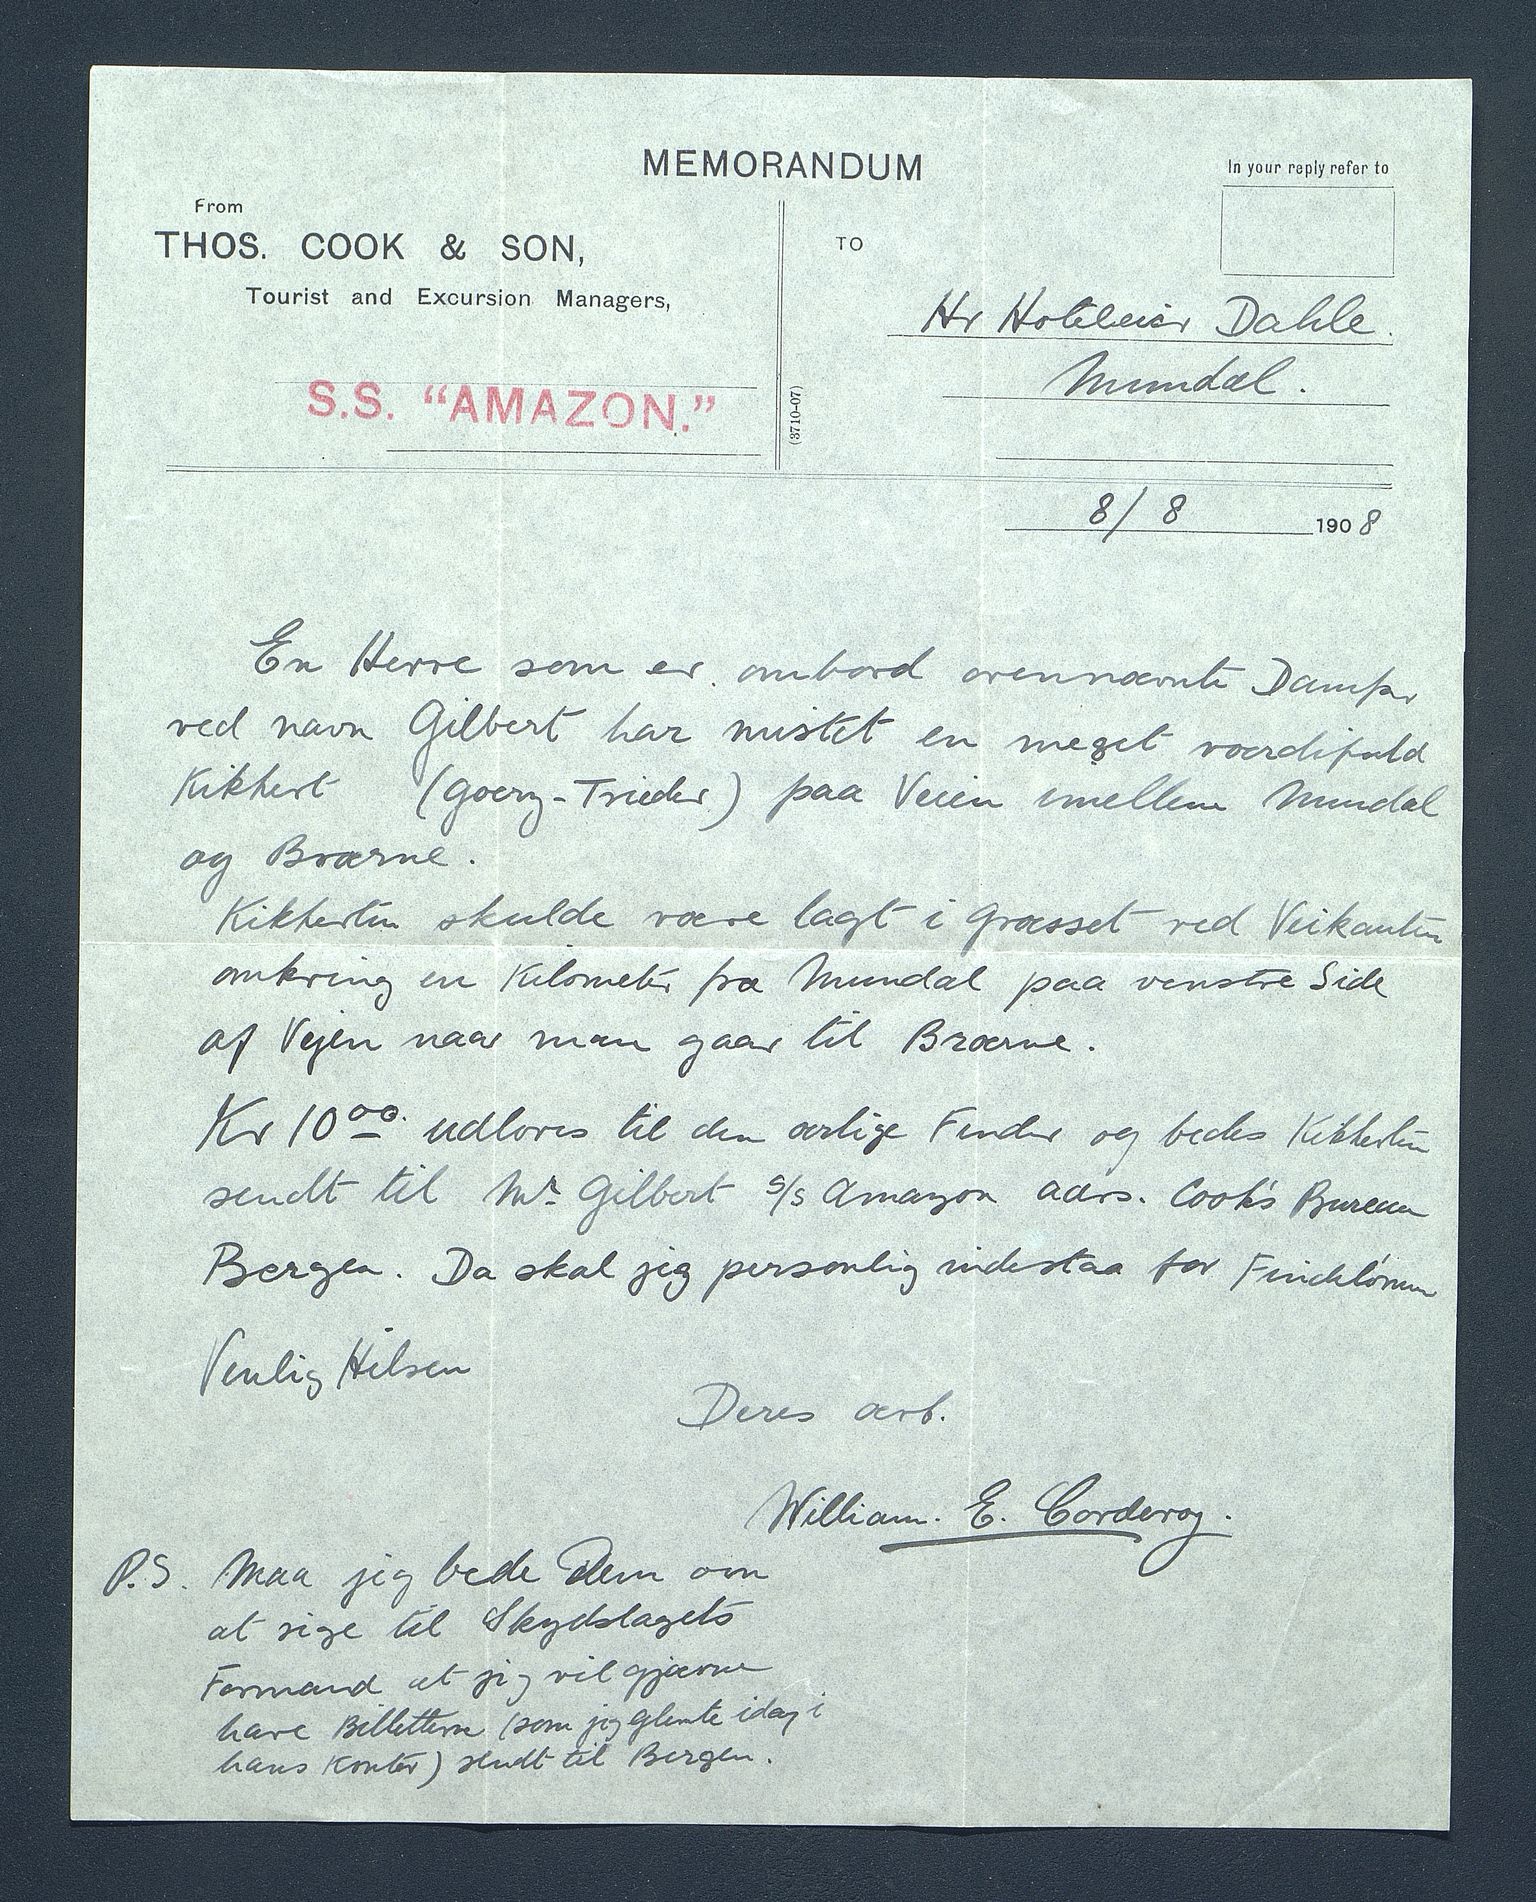 MEMORANDUM
In your reply refer to
From
THOS. COOK & SON,
Tourist and Excursion Managers,
TO
Hr Hoteleier Dahle.
Mundal.
S.S. "AMAZON."
(3710-07)
8/8 1908
En Herre som er ombord ovennævnte Dampr
ved navn Gilbert har mistet en meget værdifuld
Kikkert (Goerz-Trieder) paa Veien imellem Mundal
og Bræerne.
Kikkerten skulde være lagt i Græsset ved Veikanten
omkring en Kilometer fra Mundal paa venstre Side
af Vejen naar man gaar til Bræerne.
Kr 10.00. udloves til den ærlige Finder og bedes Kikkerten
sendt til Mr Gilbert s/s Amazon adrs. Cook's Bureau
Bergen. Da skal jeg personlig indestaa for Findelönnen
Venlig Hilsen
Deres ærb.
William. E. Corderoy.
P.S. Maa jeg bede Dem om
at sige til Skydslagets
Formand at jeg vil gjærne
have Billetterne (som jeg glemte idag i
hans Kontor) sendt til Bergen.